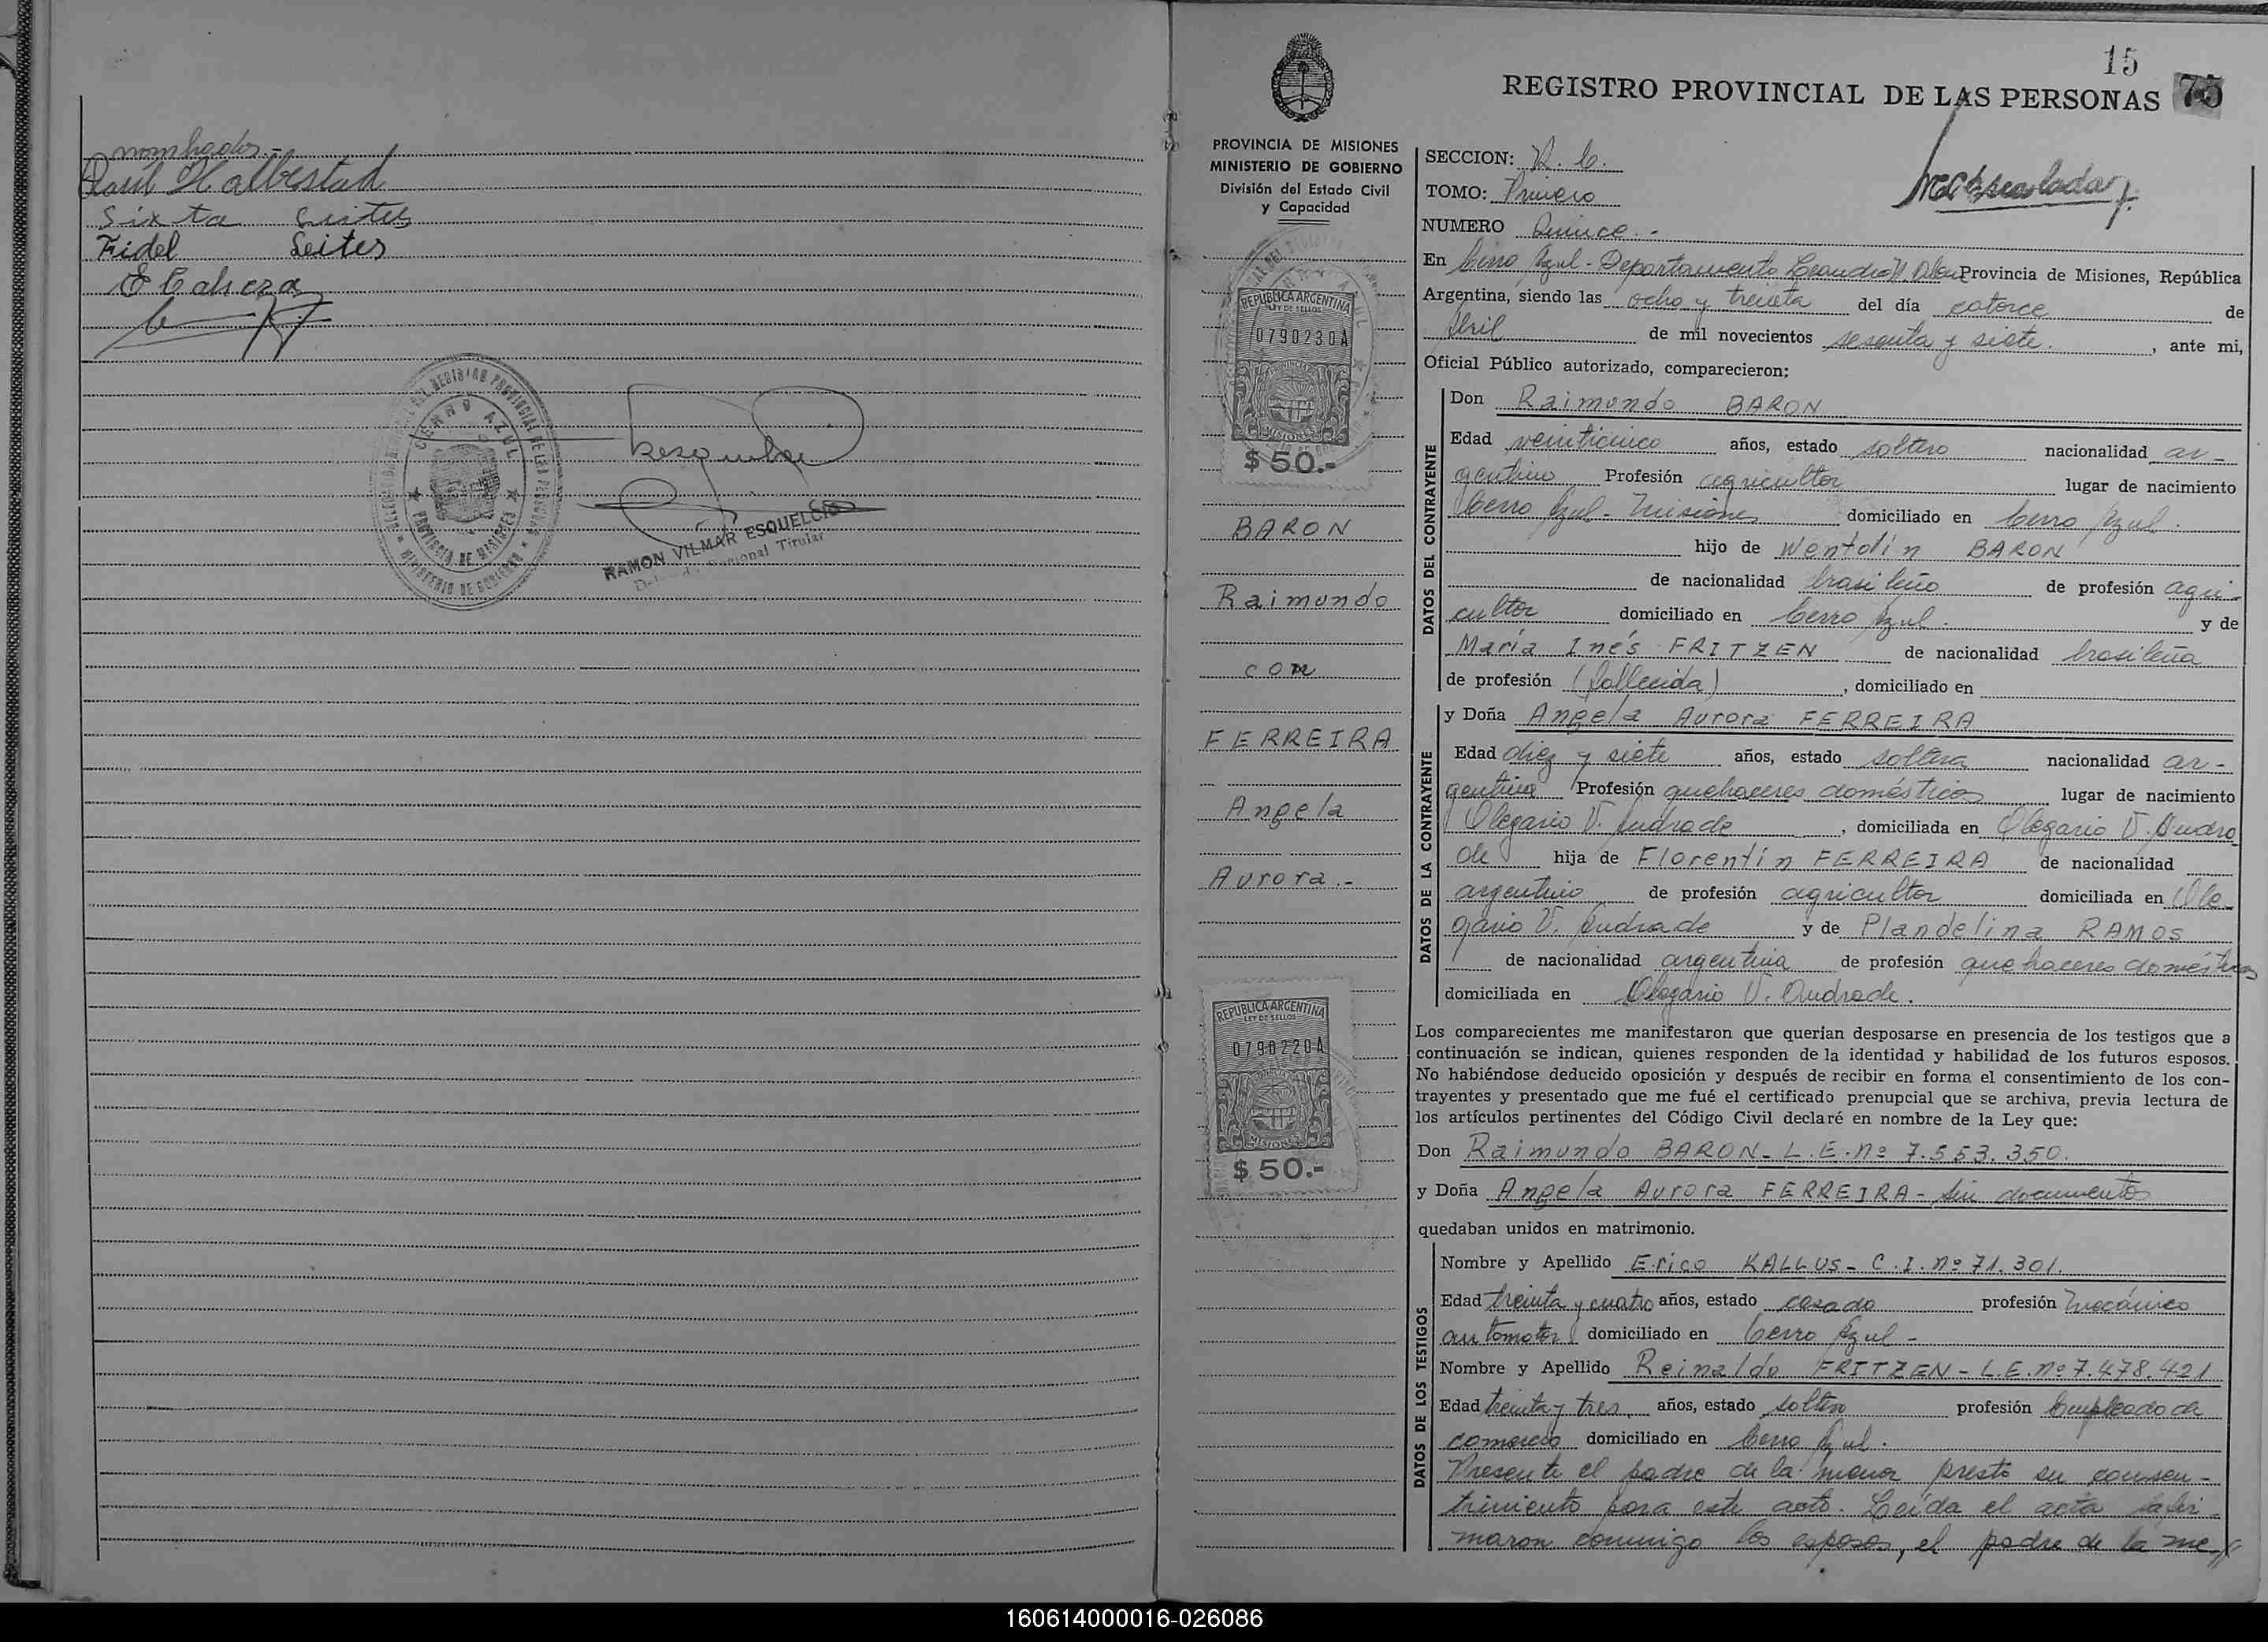 nombrados.-
Raúl Halbestad
Sixta Leites
Fidel Leites
E Cabeza
DEL REGISTRO PROVINCIAL DE LAS PERSONAS
CERRO AZUL
PROVINCIA DE MISIONES
MINISTERIO DE GOBIERNO
RAMON VILMAR ESQUELCIO
Regional Titular
15
REGISTRO PROVINCIAL DE LAS PERSONAS 75
PROVINCIA DE MISIONES
MINISTERIO DE GOBIERNO
División del Estado Civil
y Capacidad
REPUBLICA ARGENTINA
LEY DE SELLOS
0790230A
MISIONES
$ 50.-
BARON
Raimundo
con
FERREIRA
Angela
Aurora.-
REPUBLICA ARGENTINA
LEY DE SELLOS
0790220A
MISIONES
$ 50.-
SECCION: R. C.
TOMO: Primero
NUMERO Quince.-
En Cerro Azul - Departamento Leandro N. Alem Provincia de Misiones, República
Argentina, siendo las ocho y treinta del día catorce de
Abril de mil novecientos sesenta y siete. , ante mi,
Oficial Público autorizado, comparecieron:
DATOS DEL CONTRAYENTE
Don Raimundo BARON
Edad veinticinco años, estado soltero nacionalidad ar-
gentino Profesión agricultor lugar de nacimiento
Cerro Azul - Misiones domiciliado en Cerro Azul.
hijo de Wentolín BARON
de nacionalidad brasileño de profesión agri-
cultor domiciliado en Cerro Azul. y de
María Inés FRITZEN de nacionalidad brasileña
de profesión (fallecida) , domiciliado en
DATOS DE LA CONTRAYENTE
y Doña Angela Aurora FERREIRA
Edad diez y siete años, estado soltera nacionalidad ar-
gentina Profesión quehaceres domésticos lugar de nacimiento
Olegario V. Andrade , domiciliada en Olegario V. Andra
de hija de Florentín FERREIRA de nacionalidad
argentino de profesión agricultor domiciliada en Ole-
gario V. Andrade y de Plandelina RAMOS
de nacionalidad argentina de profesión quehaceres domésticos
domiciliada en Olegario V. Andrade.
Los comparecientes me manifestaron que querían desposarse en presencia de los testigos que a
continuación se indican, quienes responden de la identidad y habilidad de los futuros esposos.
No habiéndose deducido oposición y después de recibir en forma el consentimiento de los con-
trayentes y presentado que me fué el certificado prenupcial que se archiva, previa lectura de
los artículos pertinentes del Código Civil declaré en nombre de la Ley que:
Don Raimundo BARON - L.E. nº 7.553.350.
y Doña Angela Aurora FERREIRA - Sin documentos
quedaban unidos en matrimonio.
DATOS DE LOS TESTIGOS
Nombre y Apellido Erico KALLUS - C.I. nº 71.301.
Edad treinta y cuatro años, estado casado profesión Mecánico
automotor domiciliado en Cerro Azul -
Nombre y Apellido Reinaldo FRITZEN - L.E. nº 7.478.421
Edad treinta y tres años, estado soltero profesión Empleado de
comercio domiciliado en Cerro Azul.
Presente el padre de la menor presto su consen-
timiento para este acto. Leída el acta la fir-
maron conmigo los esposos, el padre de la me//
160614000016-026086